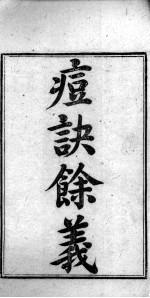 痘訣餘義